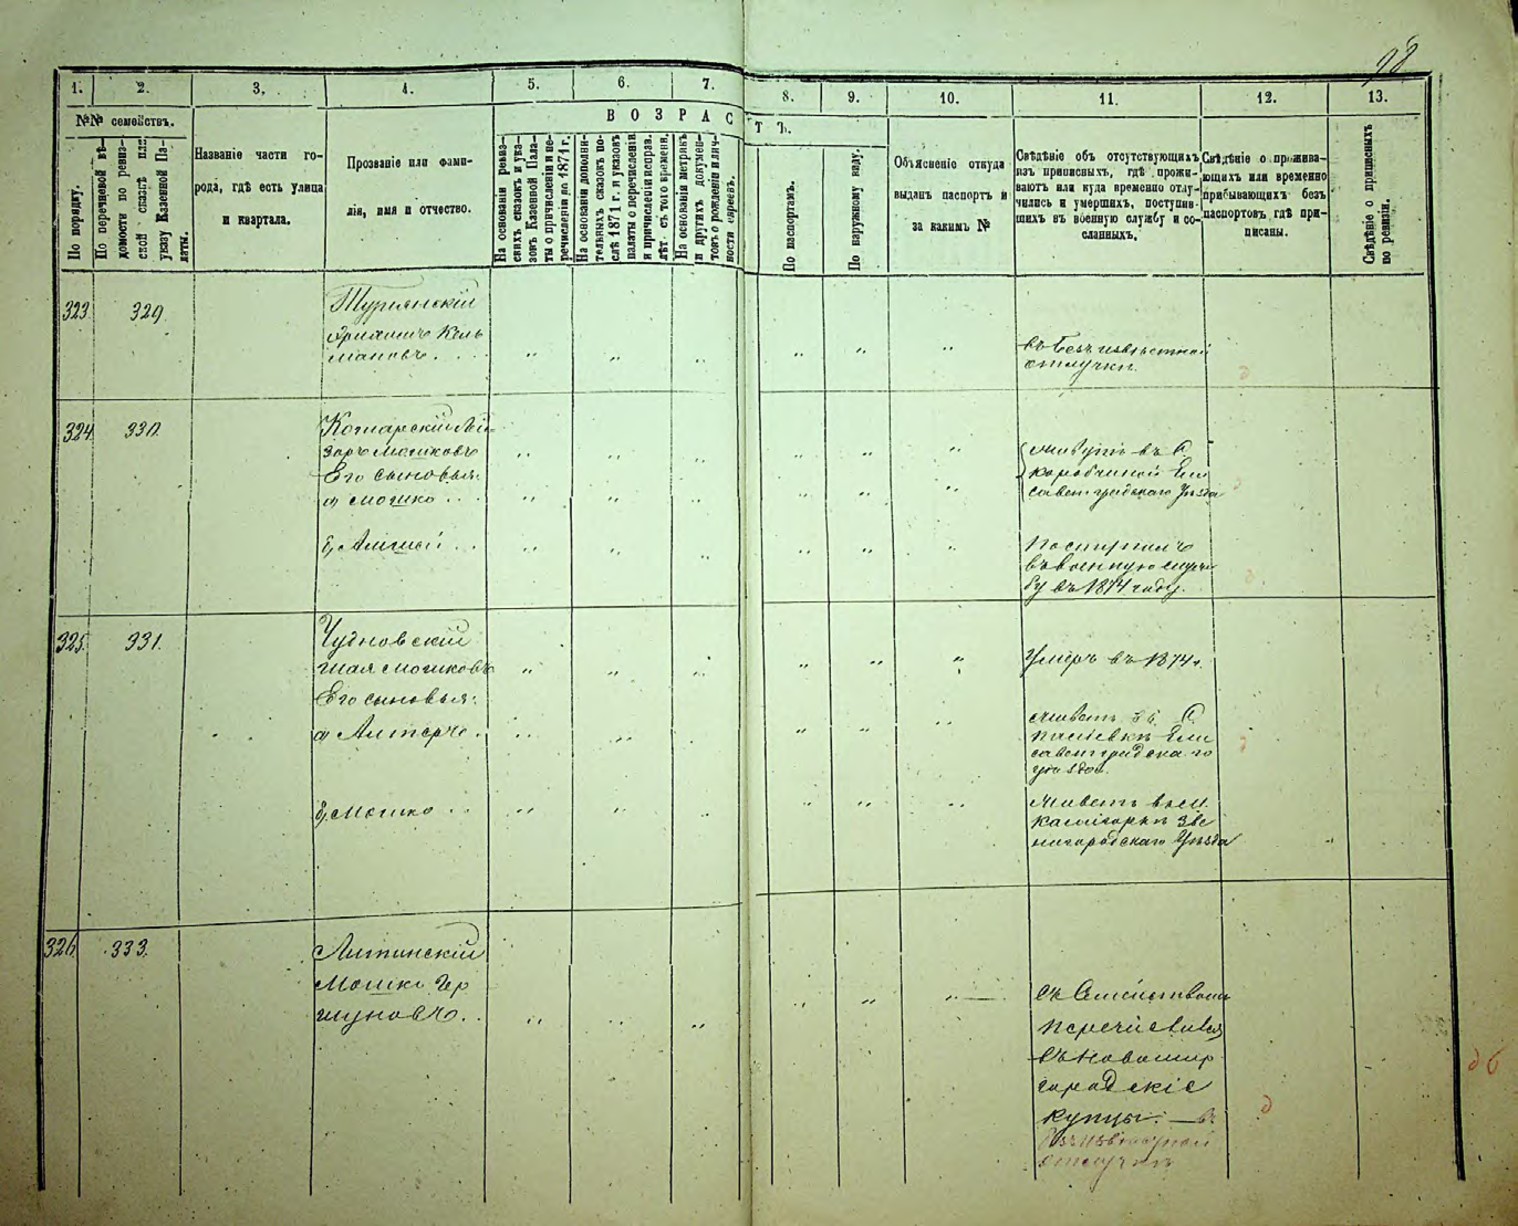 98
1.
2.
3.
4.
5.
6.
7.
8.
9.
10.
11.
12.
13.
№№ семействъ.
По порядку.
По перечневой вѣ-
домости по ревиз-
ской сказкѣ или
указу Казенной Па-
латы.
Названіе части го-
рода, гдѣ есть улица
и квартала.
Прозваніе или фами-
лія, имя и отчество.
ВОЗРАС
ТЪ.
На основаніи ревиз-
скихъ сказокъ и ука-
зовъ Казенной Пала-
ты о причисленіи и пе-
речисленіи до 1871 г.
На основаніи дополни-
тельныхъ сказокъ по-
слѣ 1871 г. и указовъ
палаты о перечисленіи
и причисленіи исправ.
лѣт. съ того времени.
На основаніи метрикъ
и другихъ докумен-
товъ о рожденіи и лич-
ности евреевъ.
По паспортамъ.
По наружному виду.
Объясненіе откуда
выданъ паспортъ и
за какимъ №
Свѣдѣніе объ отсутствующихъ
изъ приписныхъ, гдѣ прожи-
ваютъ или куда временно отлу-
чились и умершихъ, поступив-
шихъ въ военную службу и со-
сланныхъ.
Свѣдѣніе о прожива-
ющихъ или временно
прибывающихъ безъ
паспортовъ гдѣ при-
писаны.
Свѣдѣніе о приписныхъ
по ревизіи.
323
329
Турянскій
Кель
мановъ
въ безъизвѣстной
отлучки.
324
330.
Котлярскій Лей-
зоръ Мошковъ
Его сыновья:
а, Мошко
Живутъ въ С.
Ели
саветградскаго Уѣзда
б,
Поступилъ
въ военную служ
бу въ 1874 году.
325.
331.
Чудновскій
Шая Мошковъ
Его сыновья:
а, Альтеръ
Умеръ въ 1874 г.
Живетъ въ С.
Ели
саветградска го
уѣзда.
б, Мошко
Живетъ въ м.
Зве
нигородскаго Уѣзда
326
333.
Литинскій
Мошко Гер
шуновъ
съ Семействомъ
перечислился
въ Новомир
городскіе
купцы. — въ
безъизвѣстной
отлучки
д 6